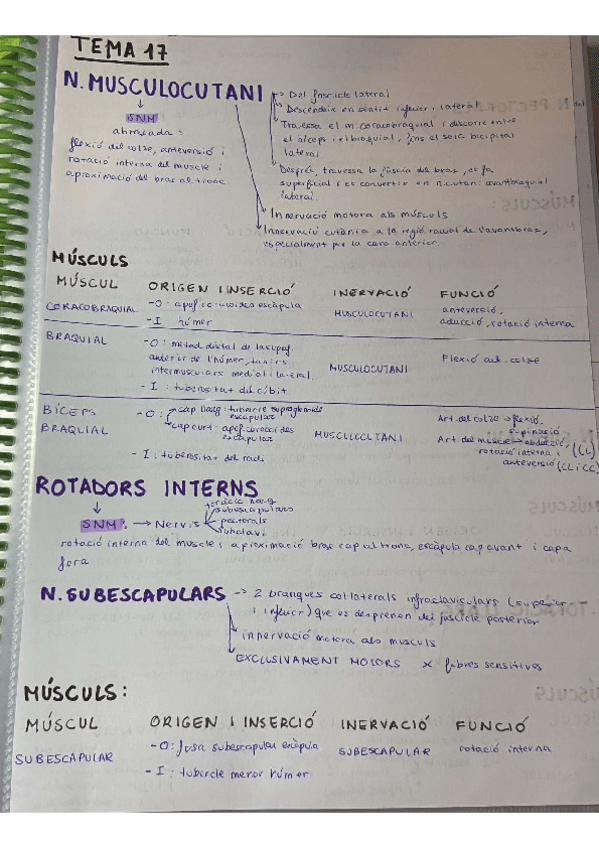 TEMA 17
N. MUSCULOCUTANI
→ Del fascicle lateral
→ Descendeix en sentit inferior i lateral
→ Travessa el m. coracobraquial i discorre entre
el bíceps i el braquial, fins el solc bicipital
lateral
→ Després, travessa la fàscia del braç, es fa
superficial i es converteix en n. cutani avantbraquial
lateral.
→ Innervació motora als músculs
→ Innervació cutània a la regió radial de l'avantbraç,
especialment per la cara anterior.
↓
SNM
abraçada:
flexió del colze, anteversió i
rotació interna del muscle i
aproximació del braç al tronc.
MÚSCULS
MÚSCUL ORIGEN I INSERCIÓ INERVACIÓ FUNCIÓ
CORACOBRAQUIAL - O: apòf. coracoides escàpula MUSCULOCUTANI anteversió,
- I húmer adducció, rotació interna
BRAQUIAL - O: meitat distal de la superf.
anterior de l'húmer,
intermusculars medial i lateral. MUSCULOCUTANI Flexió art. colze
- I: tuberositat del cúbit
BÍCEPS BRAQUIAL - O: cap llarg: tubercle supraglenoide
escapular
cap curt: apòf. coracoides
escapular
- I: tuberositat del radi
MUSCULOCUTANI
Art. del colze → flexió,
supinació
Art. del muscle → abducció,
rotació interna (CLL)
anteversió (CLL i CC)
ROTADORS INTERNS
↓
SNM → Nervis
toràcic llarg
subescapulars
pectorals
subclavi
rotació interna del muscle i aproximació braç cap al tronc, escàpula cap avant i cap a
fora
N. SUBESCAPULARS → 2 branques col·laterals infraclaviculars (superior
i inferior) que es desprenen del fascicle posterior
→ innervació motora als musculs
→ EXCLUSIVAMENT MOTORS X fibres sensitives
MÚSCULS:
MÚSCUL ORIGEN I INSERCIÓ INERVACIÓ FUNCIÓ
SUBESCAPULAR - O: fosa subescapular escàpula SUBESCAPULAR rotació interna
- I: tubercle menor húmer